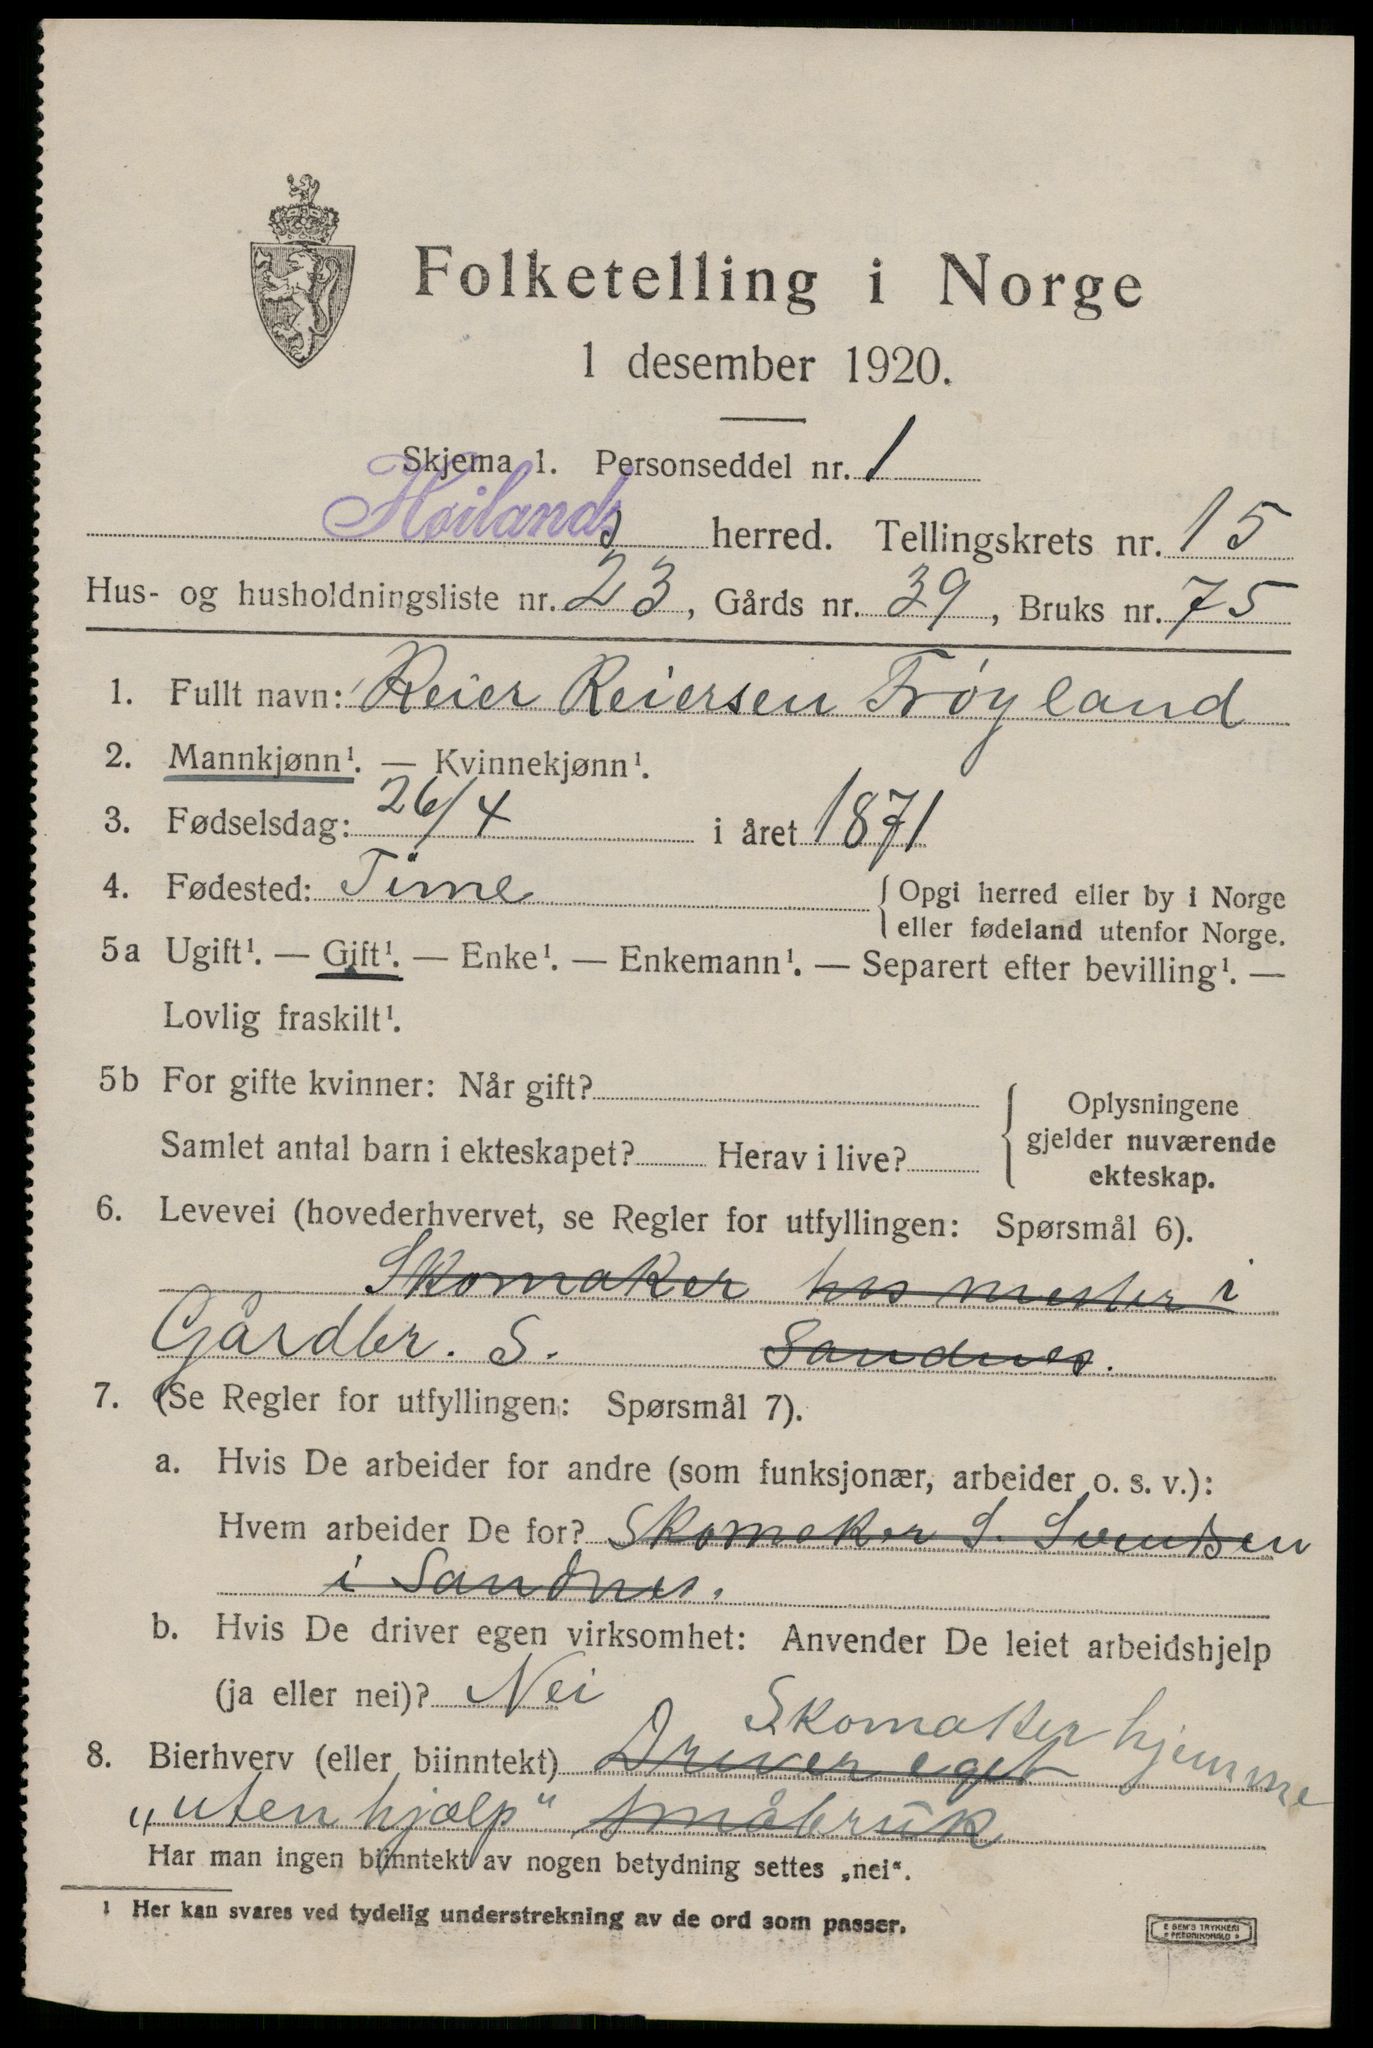 Folketelling i Norge
1 desember 1920.
Skjema 1. Personseddel nr. 1
Høilands herred. Tellingskrets nr. 15
Hus- og husholdningsliste nr. 23, Gårds nr. 39, Bruks nr. 75
1. Fullt navn: Reier Reiersen Frøyland
2. Mannkjønn¹. — Kvinnekjønn¹.
3. Fødselsdag: 26/4 i året 1871
4. Fødested: Time { Opgi herred eller by i Norge
eller fødeland utenfor Norge.
5a Ugift¹. — Gift¹. — Enke¹. — Enkemann¹. — Separert efter bevilling¹. —
Lovlig fraskilt¹.
5b For gifte kvinner: Når gift?
Samlet antal barn i ekteskapet? Herav i live?
Oplysningene
gjelder nuværende
ekteskap.
6. Levevei (hovederhvervet, se Regler for utfyllingen: Spørsmål 6).
Skomaker hos mester i
Gårdbr. S. Sandnes.
7. (Se Regler for utfyllingen: Spørsmål 7).
a. Hvis De arbeider for andre (som funksjonær, arbeider o. s. v.):
Hvem arbeider De for? Skomaker S. Svendsen
i Sandnes.
b. Hvis De driver egen virksomhet: Anvender De leiet arbeidshjelp
(ja eller nei)? Nei
Skomaker hjemme
8. Bierhverv (eller biinntekt) Driver eget
„uten hjælp" småbruk
Har man ingen biinntekt av nogen betydning settes „nei“.
1 Her kan svares ved tydelig understrekning av de ord som passer.
E SEM'S TRYKKERI
FREDRIKSHALD